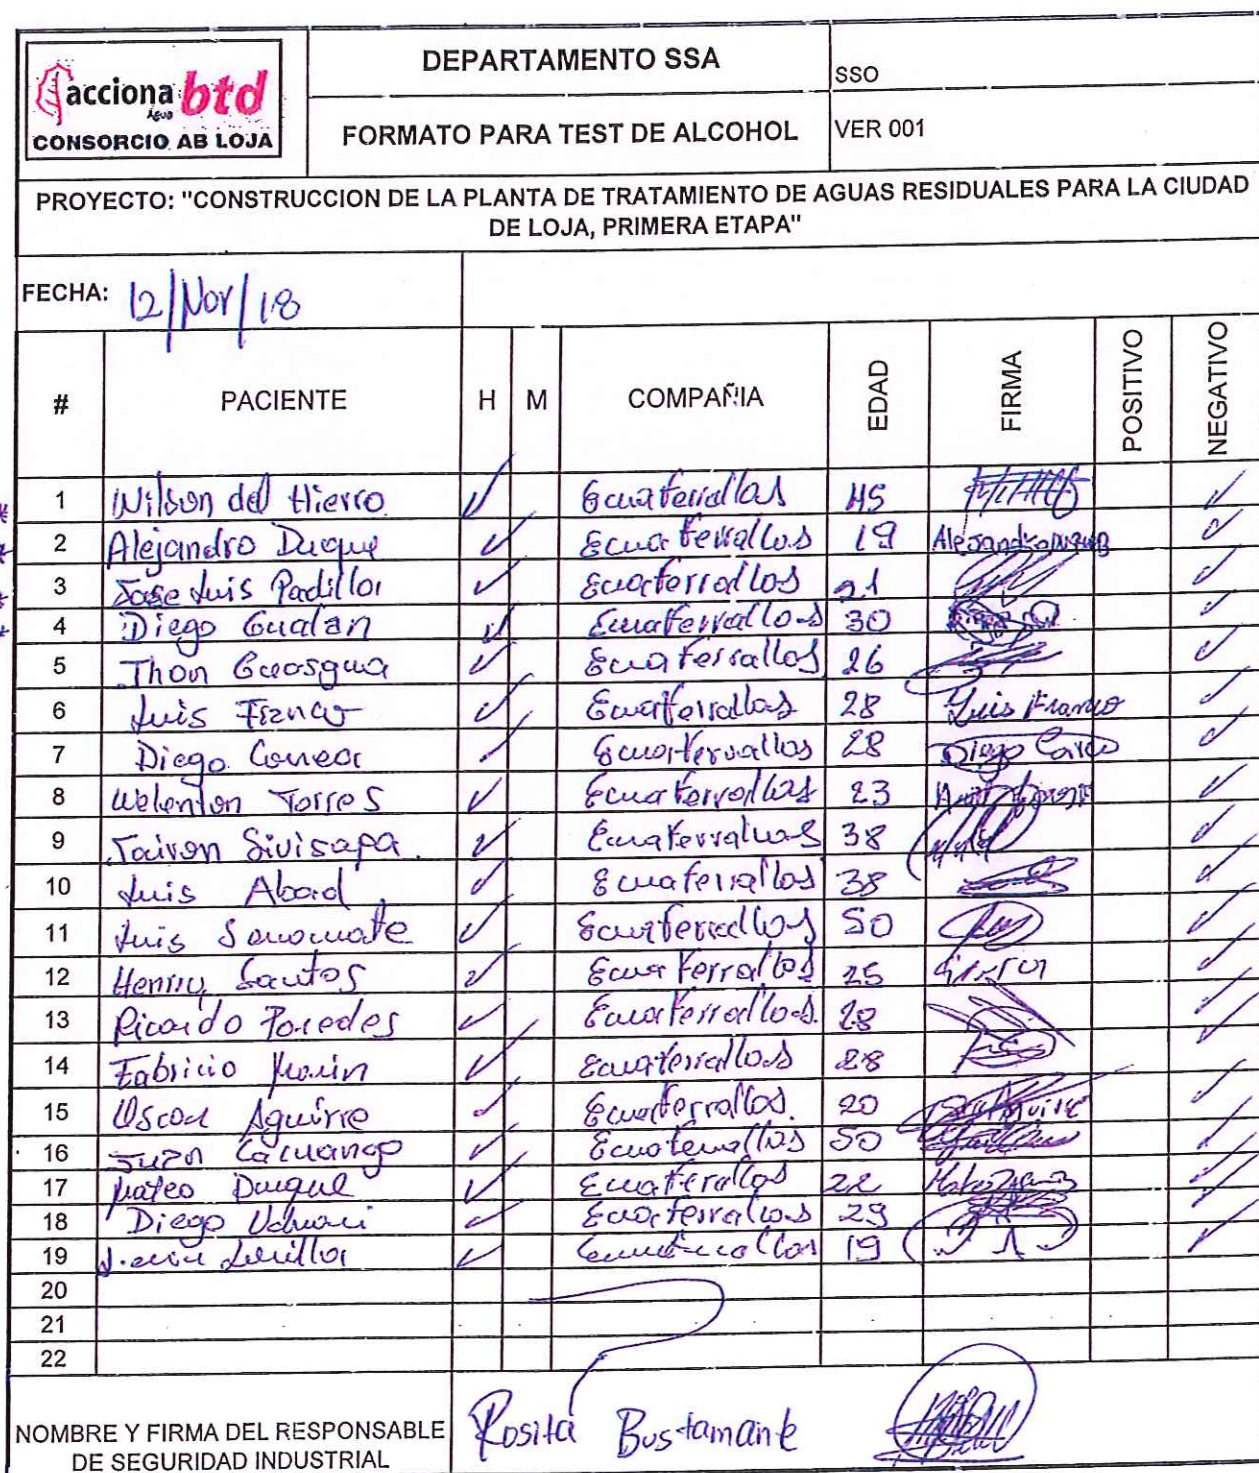 acciona btd
Agua
CONSORCIO AB LOJA
DEPARTAMENTO SSA
SSO
FORMATO PARA TEST DE ALCOHOL
VER 001
PROYECTO: "CONSTRUCCION DE LA PLANTA DE TRATAMIENTO DE AGUAS RESIDUALES PARA LA CIUDAD
DE LOJA, PRIMERA ETAPA"
FECHA: 12/Nov/18
# PACIENTE H M COMPAÑIA EDAD FIRMA POSITIVO NEGATIVO
1 Wilson del Hierro ✓ Ecuaferrallas 45 ✓
2 Alejandro Duque ✓ Ecuaferrallas 19 Alejandro Duque ✓
3 Jose Luis Padilla ✓ Ecuaferrallas 21 ✓
4 Diego Gualan ✓ Ecuaferrallas 30 ✓
5 Jhon ✓ Ecuaferrallas 26 ✓
6 Luis Franco ✓ Ecuaferrallas 28 Luis Franco ✓
7 Diego ✓ Ecuaferrallas 28 Diego ✓
8 Welenton Torres ✓ Ecuaferrallas 23 ✓
9 Jairon Sivisapa ✓ Ecuaferrallas 38 ✓
10 Luis Abad ✓ Ecuaferrallas 38 ✓
11 Luis ✓ Ecuaferrallas 50 ✓
12 Henrry Santos ✓ Ecuaferrallas 25 ✓
13 Ricardo Paredes ✓ Ecuaferrallas 28 ✓
14 Fabricio Marin ✓ Ecuaferrallas 28 ✓
15 Oscar Aguirre ✓ Ecuaferrallas 20 ✓
16 Juan Cacuango ✓ Ecuaferrallas 50 ✓
17 Mateo Duque ✓ Ecuaferrallas 22 ✓
18 Diego ✓ Ecuaferrallas 29 ✓
19 ✓ 19 ✓
20
21
22
NOMBRE Y FIRMA DEL RESPONSABLE
DE SEGURIDAD INDUSTRIAL
Rosita Bustamante